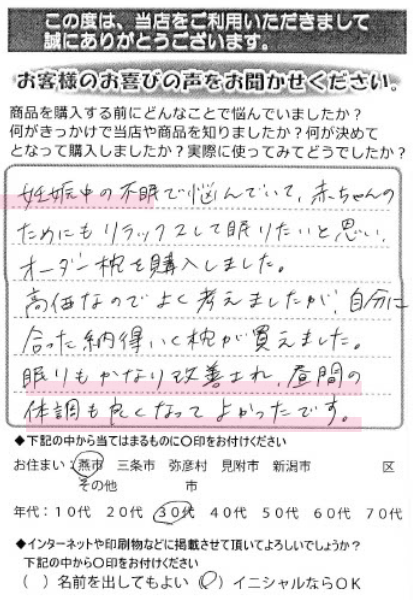 この度は、当店をご利用いただきまして
誠にありがとうございます。
お客様のお喜びの声をお聞かせください。
商品を購入する前にどんなことで悩んでいましたか?
何がきっかけで当店や商品を知りましたか?何が決めて
となって購入しましたか?実際に使ってみてどうでしたか?
妊娠中の不眠で悩んでいて、赤ちゃんの
ためにもリラックスして眠りたいと思い、
オーダー枕を購入しました。
高価なのでよく考えましたが、自分に
合った納得いく枕が買えました。
眠りもかなり改善され、昼間の
体調も良くなってよかったです。
◆下記の中から当てはまるものに〇印をお付けください
お住まい:燕市 三条市 弥彦村 見附市 新潟市 区
その他 市
年代:10代 20代 30代 40代 50代 60代 70代
◆インターネットや印刷物などに掲載させて頂いてよろしいでしょうか?
下記の中から〇印をお付けください
( )名前を出してもよい (〇)イニシャルならOK